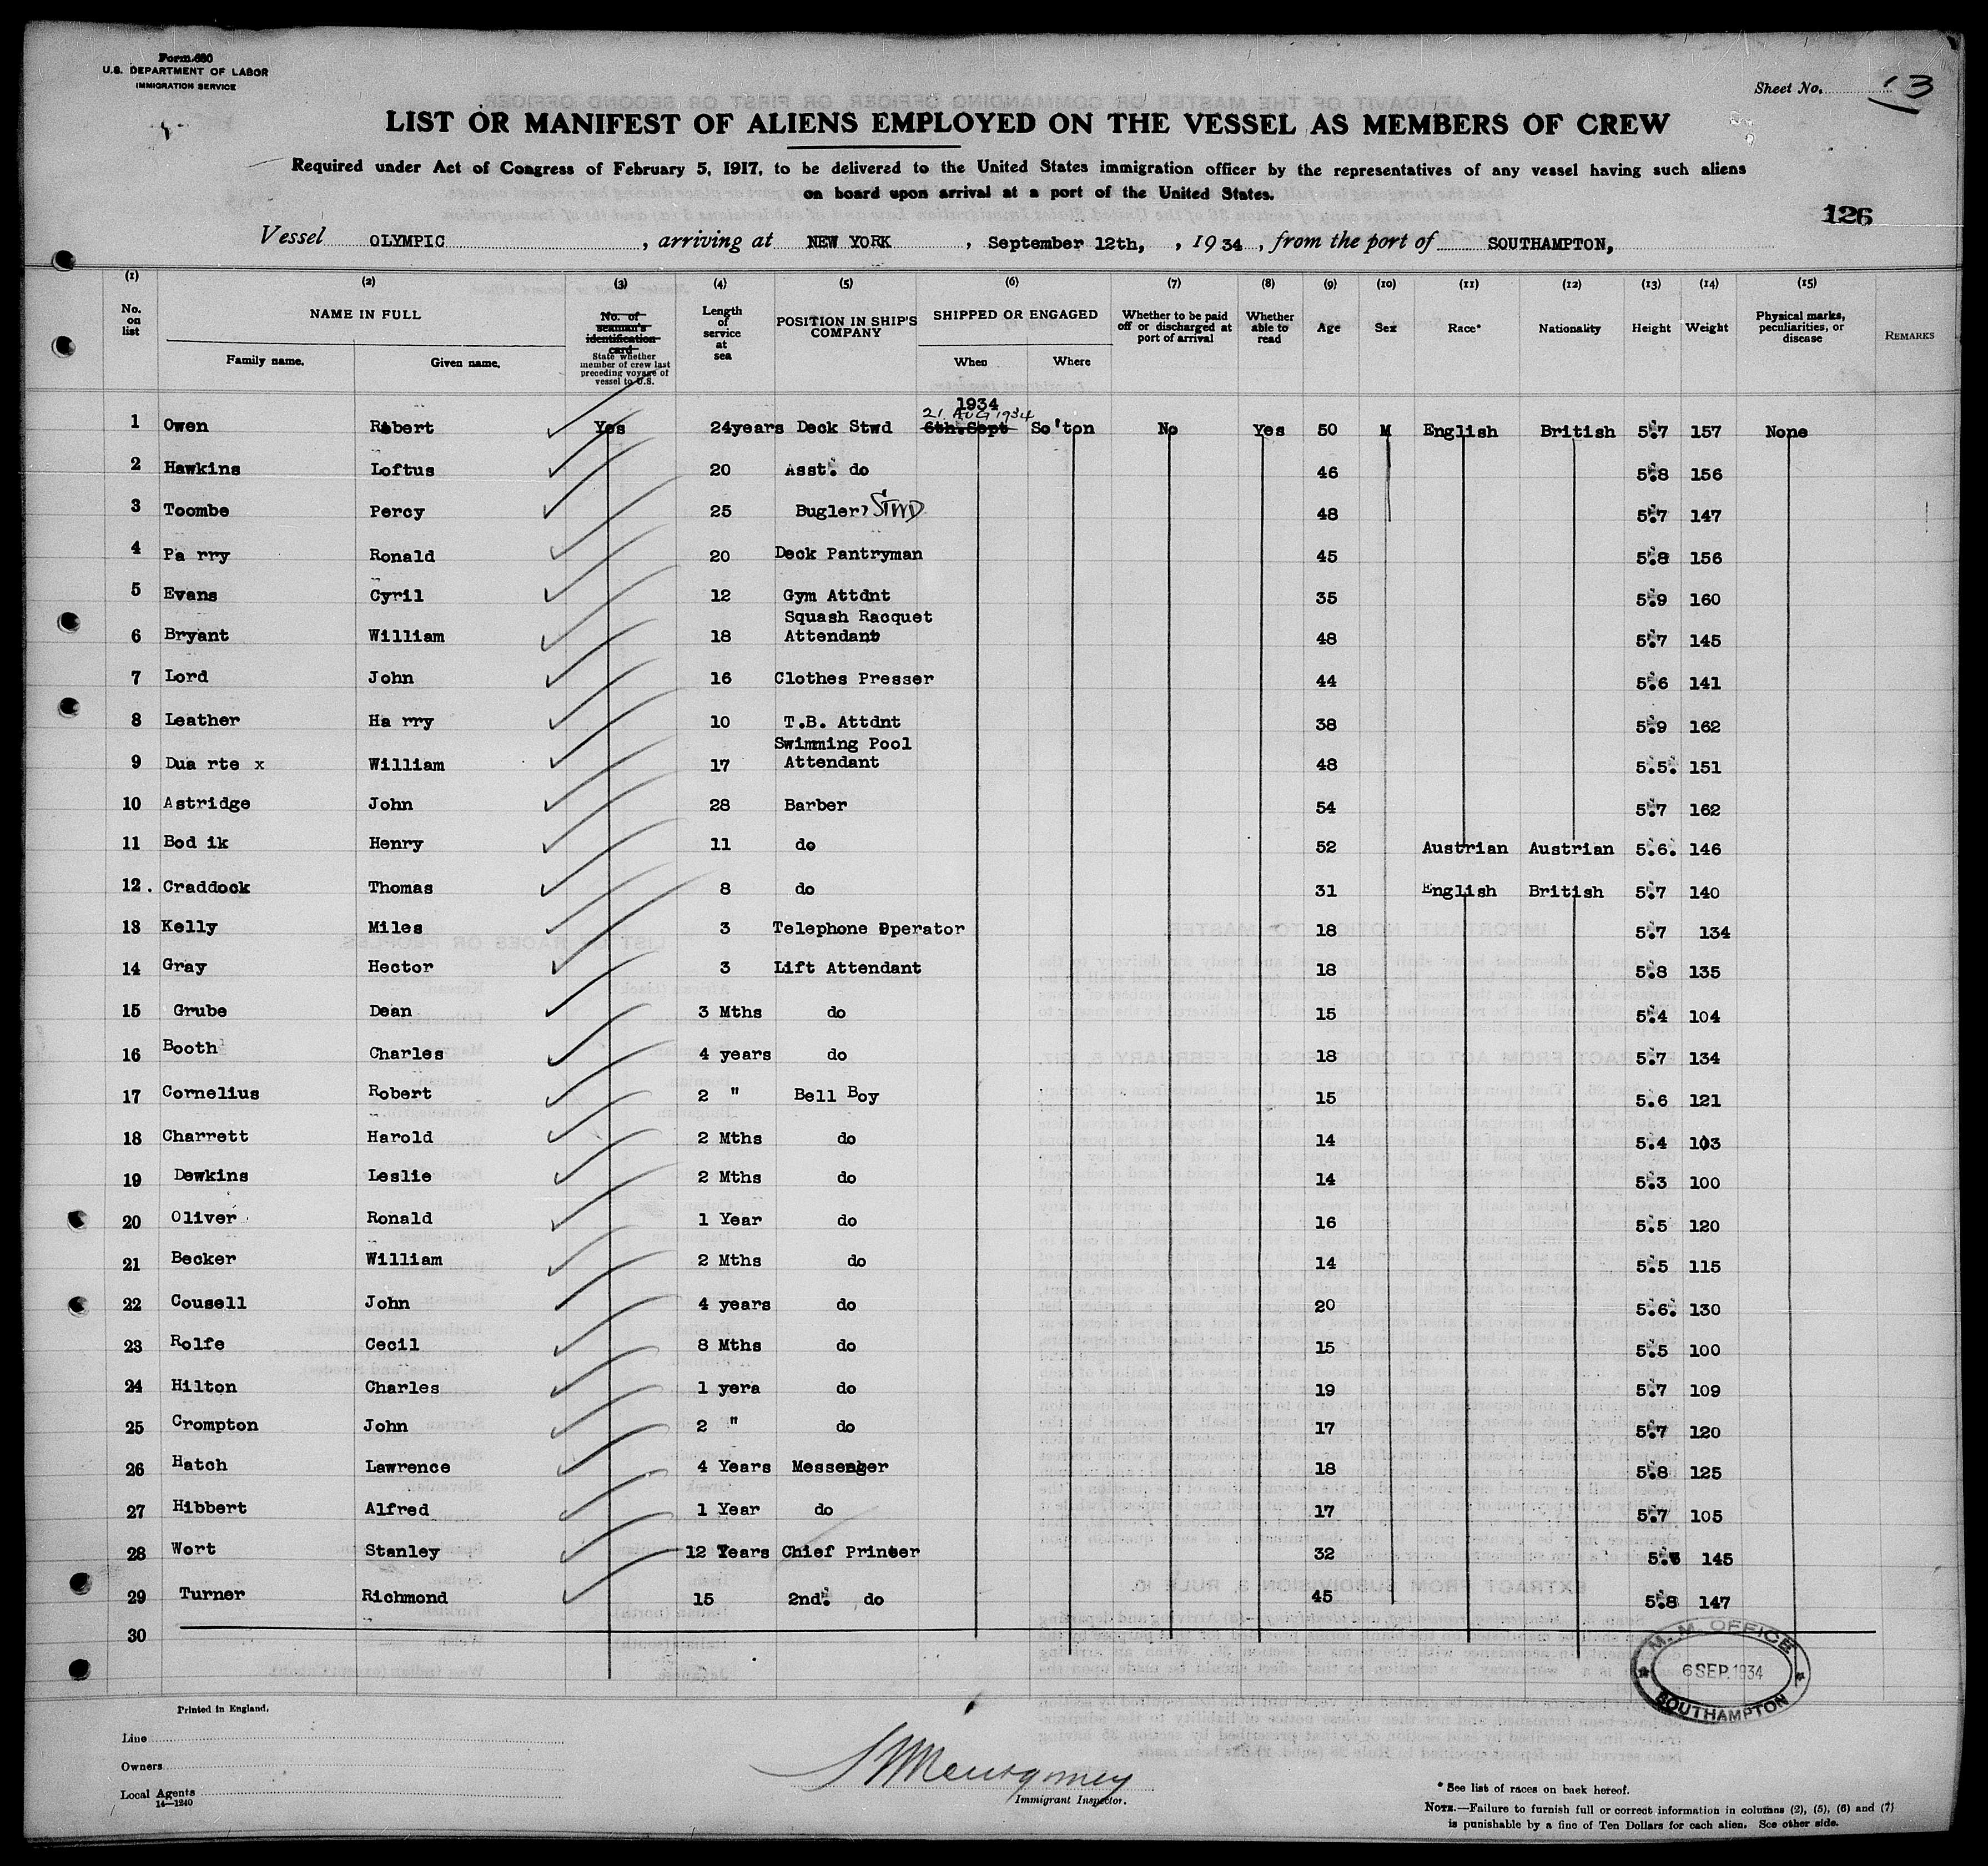 Form 680
U.S. DEPARTMENT OF LABOR
IMMIGRATION SERVICE
Sheet No. 13
LIST OR MANIFEST OF ALIENS EMPLOYED ON THE VESSEL AS MEMBERS OF CREW
Required under Act of Congress of February 5, 1917, to be delivered to the United States immigration officer by the representatives of any vessel having such aliens
on board upon arrival at a port of the United States.
126
Vessel OLYMPIC, arriving at NEW YORK, September 12th, , 1934, from the port of SOUTHAMPTON,
(1) (2) (3) (4) (5) (6) (7) (8) (9) (10) (11) (12) (13) (14) (15)
No. on list
NAME IN FULL
Family name. Given name.
No. of seaman's identification card
State whether member of crew last preceding voyage of vessel to U.S.
Length of service at sea
POSITION IN SHIP'S COMPANY
SHIPPED OR ENGAGED
When Where
Whether to be paid off or discharged at port of arrival
Whether able to read
Age
Sex
Race*
Nationality
Height
Weight
Physical marks, peculiarities, or disease
REMARKS
1934
21 AUG 1934
1 Owen Robert Yes 24years Deck Stwd 6th.Sept So'ton No Yes 50 M English British 5.7 157 None
2 Hawkins Loftus 20 Asst. do 46 5.8 156
3 Toombe Percy 25 Bugler, STWD 48 5.7 147
4 Pa rry Ronald 20 Deck Pantryman 45 5.8 156
5 Evans Cyril 12 Gym Attdnt 35 5.9 160
Squash Racquet
6 Bryant William 18 Attendant 48 5.7 145
7 Lord John 16 Clothes Presser 44 5.6 141
8 Leather Ha rry 10 T.B. Attdnt 38 5.9 162
Swimming Pool
9 Dua rte x William 17 Attendant 48 5.5. 151
10 Astridge John 28 Barber 54 5.7 162
11 Bod ik Henry 11 do 52 Austrian Austrian 5.6. 146
12. Craddock Thomas 8 do 31 English British 5.7 140
13 Kelly Miles 3 Telephone Operator 18 5.7 134
14 Gray Hector 3 Lift Attendant 18 5.8 135
15 Grube Dean 3 Mths do 15 5.4 104
16 Booth Charles 4 years do 18 5.7 134
17 Cornelius Robert 2 " Bell Boy 15 5.6 121
18 Charrett Harold 2 Mths do 14 5.4 103
19 Dewkins Leslie 2 Mths do 14 5.3 100
20 Oliver Ronald 1 Year do 16 5.5 120
21 Becker William 2 Mths do 14 5.5 115
22 Cousell John 4 years do 20 5.6. 130
23 Rolfe Cecil 8 Mths do 15 5.5 100
24 Hilton Charles 1 yera do 19 5.7 109
25 Crompton John 2 " do 17 5.7 120
26 Hatch Lawrence 4 Years Messenger 18 5.8 125
27 Hibbert Alfred 1 Year do 17 5.7 105
28 Wort Stanley 12 Years Chief Printer 32 145
29 Turner Richmond 15 2nd. do 45 5.8 147
30
M. M. OFFICE
6 SEP. 1934
SOUTHAMPTON
Printed in England.
Line
Owners
Local Agents
14—1240
Montgomery
Immigrant Inspector.
* See list of races on back hereof.
NOTE.—Failure to furnish full or correct information in columns (2), (5), (6) and (7)
is punishable by a fine of Ten Dollars for each alien. See other side.